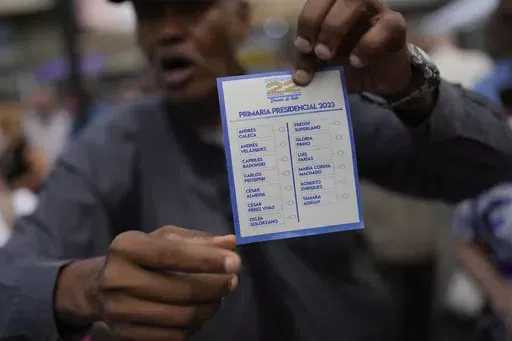 PRIMARIA PRESIDENCIAL 2023
ANDRÉS
CALECA
ANDRÉS
VELASQUEZ
CAPRILES
RADONSKI
CARLOS
PROSPERI
CÉSAR
ALMEIDA
CÉSAR
PÉREZ VIVAS
DELSA
SOLORZANO
FREDDY
SUPERLANO
GLORIA
PINHO
LUIS
FARÍAS
MARÍA CORINA
MACHADO
ROBERTO
ENRÍQUEZ
TAMARA
ADRIÁN